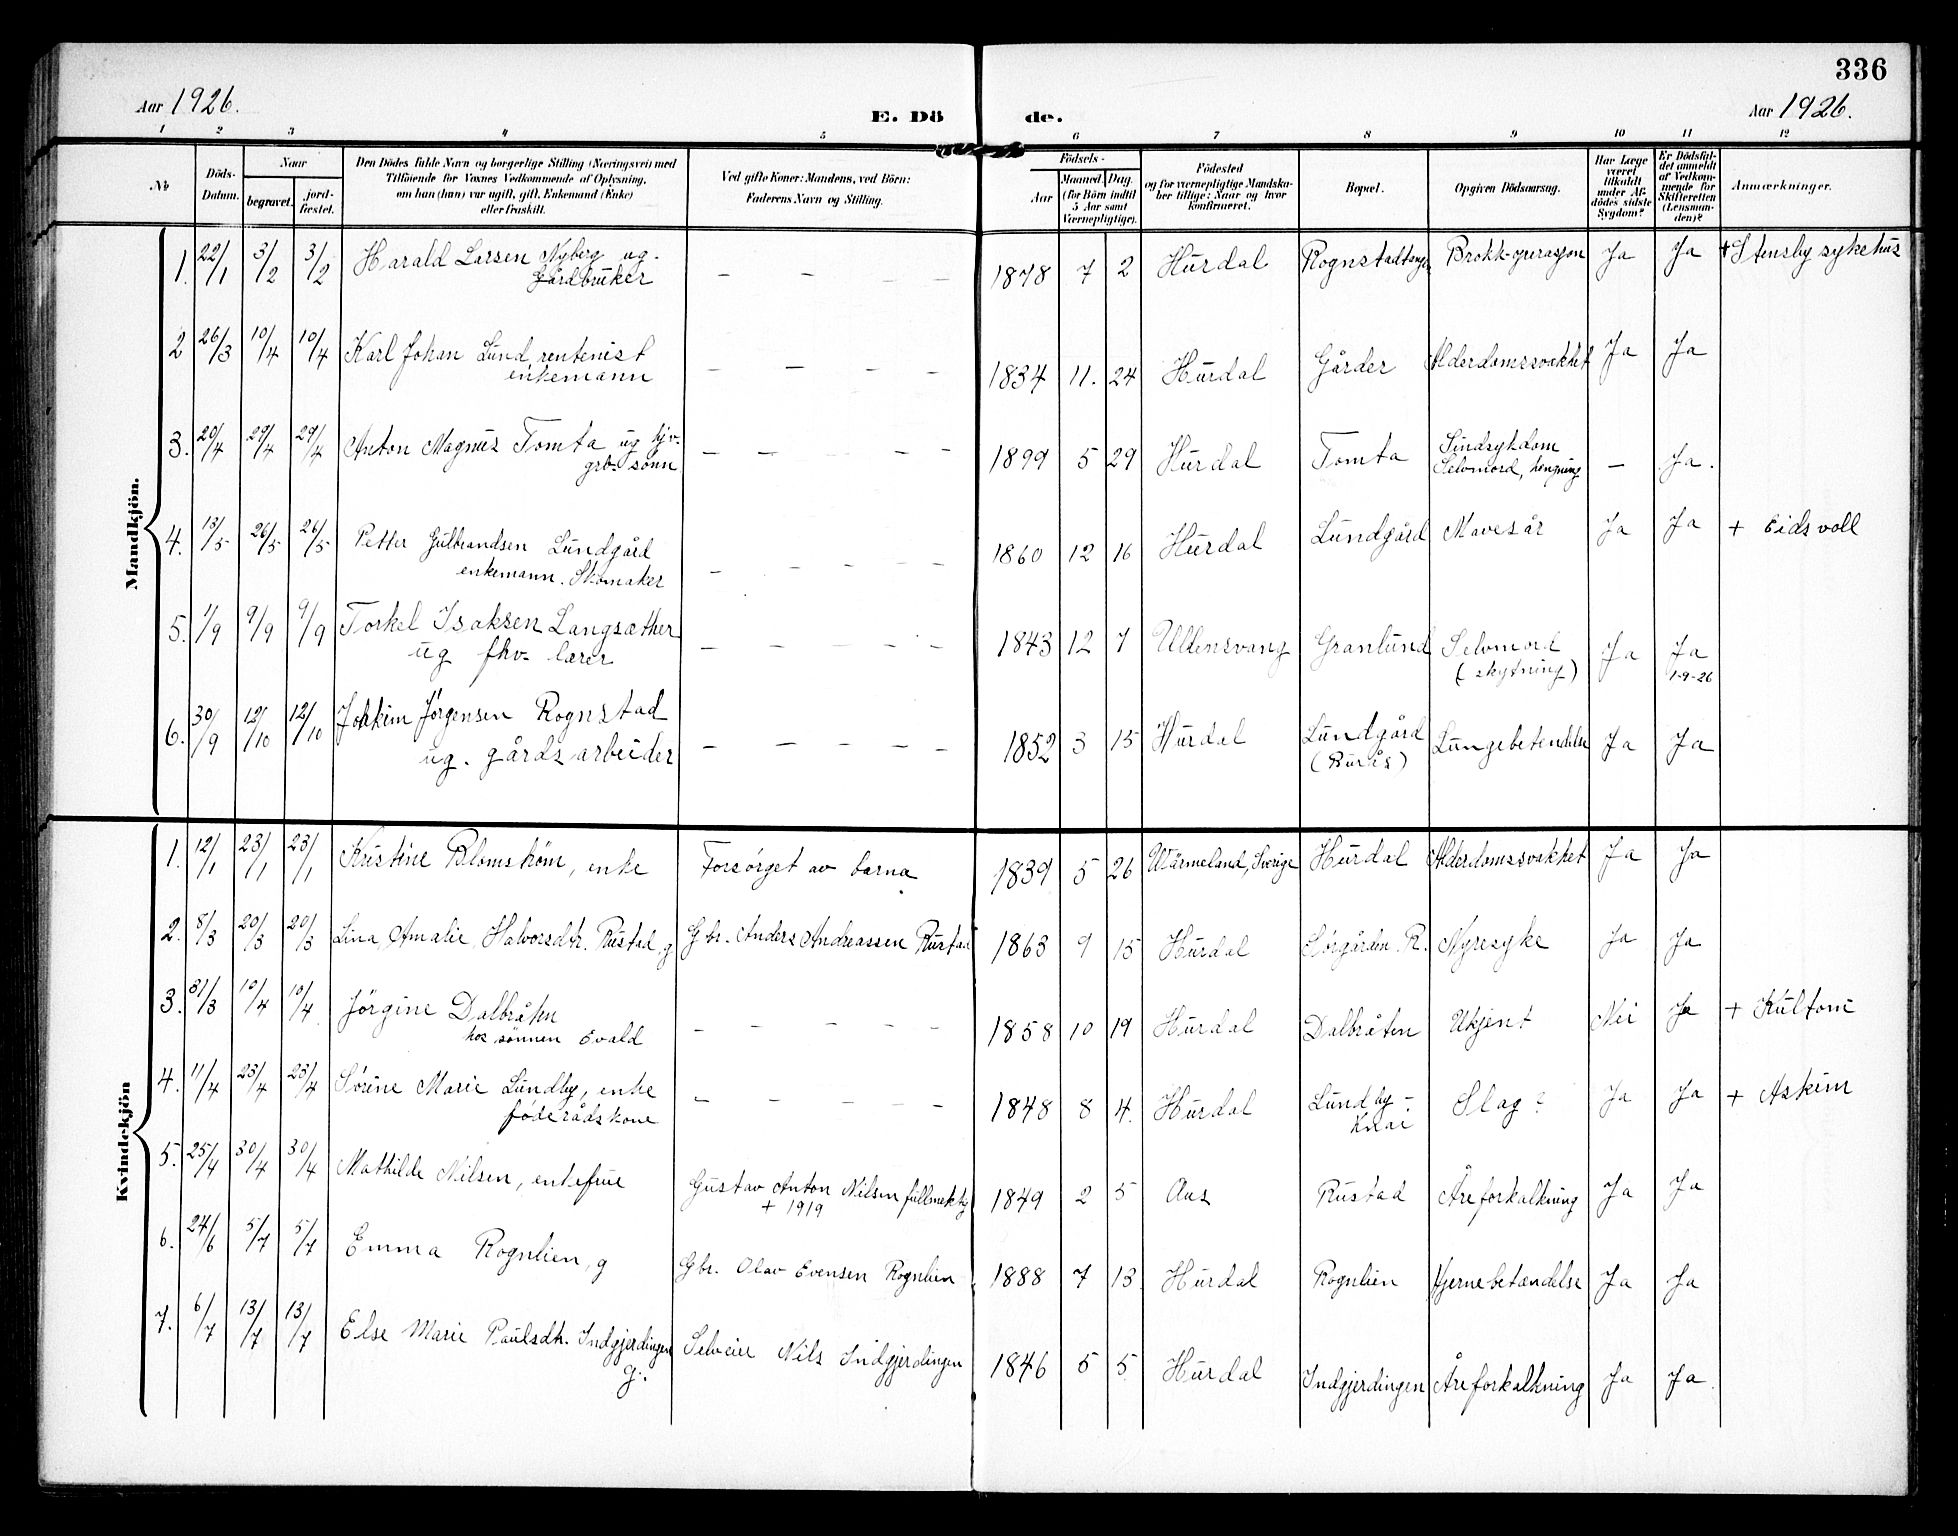 336
Aar 1926.
E. Dö
de.
Aar 1926.
1 2 3 4 5 6 7 8 9 10 11 12
No
Döds-
Datum.
Naar
begravet.
jord-
fæstet.
Den Dödes fulde Navn og borgerlige Stilling (Næringsvei) med
Tilföiende for Voxnes Vedkommende af Oplysning,
om han (hun) var ugift, gift, Enkemand (Enke)
eller fraskilt.
Ved gifte Koner: Mandens, ved Börn:
Faderens Navn og Stilling.
Födsels-
Aar
Maaned. Dag.
(for Börn indtil
5 Aar samt
Værnepligtige).
Födested
og for værnepligtige Mandska-
ber tillige: Naar og hvor
konfirmeret.
Bopæl.
Opgiven Dödsaarsag.
Har Læge
været
tilkaldt
under Af-
dödes sidste
Sygdom?
Er Dödsfal-
det anmeldt
af Vedkom-
mende for
Skifteretten
(Lensman-
den)?
Anmærkninger.
Mandkjön.
1. 22/1 3/2 3/2 Harald Larsen Nyberg ug. — — — — 1878 7 2 Hurdal Rognstadtangen Brokk-operasjon Ja Ja + Stensby sykehus
Gårdbruker
2 26/3 10/4 10/4 Karl Johan Lund rentenist — — — — 1834 11. 24 Hurdal Gårder Alderdomssvakhet Ja Ja
enkemann
3. 20/4 29/4 29/4 Anton Magnus Tomta ug hjv. — — — — — 1899 5 29 Hurdal Tomta Sindsykdom — Ja.
grb. sønn Selvmord, hengning
4. 13/5 26/5 26/5 Petter Gulbrandsen Lundgård — — — — — 1860 12 16 Hurdal Lundgård Mavesår Ja Ja + Eidsvoll
enkemann. Skomaker
5. 1/9 9/9 9/9 Torkel Isaksen Langsæther — — — — — 1843 12 7 Ullensvang Granlund Selvmord Ja Ja
ug fhv. lærer (skytning) 1-9-26
6. 30/9 12/10 12/10 Jokkim Jörgensen Rognstad — — — — 1852 3 15 Hurdal Lundgård Lungebetendelse Ja Ja
ug. gårdsarbeider (Burås)
Kvindekjön
1. 12/1 23/1 23/1 Kristine Blomström, enke Forsörget av barna 1839 5 26 Wärmeland, Sverige Hurdal Alderdomssvakhet Ja Ja
2. 8/3 20/3 20/3 Lina Amalie Halvorsdtr. Rustad, g Gbr. Anders Andreassen Rustad 1863 9 15 Hurdal Sørgården R. Nyresyke Ja Ja
3. 31/3 10/4 10/4 Jörgine Dalbråten — — — — — 1858 10 19 Hurdal Dalbråten Ukjent Nei Ja +
hos sönnen Evald
4. 11/4 23/4 23/4 Sörine Marie Lundby, enke — — — — — 1848 8 4. Hurdal Lundby - Slag? Ja Ja + Askim
föderådskone Knai
5. 25/4 30/4 30/4 Mathilde Nilsen, enkefrue Gustav Anton Nilsen fullmektig 1849 2 5 Aas Rustad Åreforkalkning Ja Ja
+ 1919
6. 24/6 5/7 5/7 Emma Rognlien, g Gbr. Olav Evensen Rognlien 1888 7 13 Hurdal Rognlien Hjernebetændelse Ja Ja
7. 6/7 13/7 13/7 Else Marie Paulsdtr. Indgjerdingen Selveier Nils Indgjerdingen 1846 5 5 Hurdal Indgjerdingen Åreforkalkning Ja Ja
g.